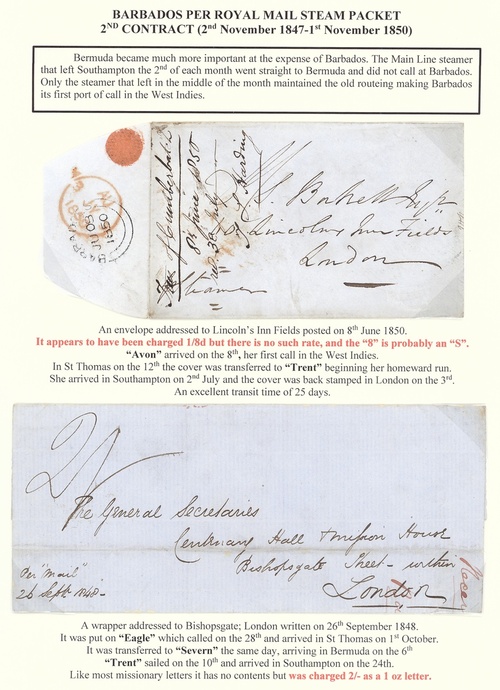 BARBADOS PER ROYAL MAIL STEAM PACKET
2ND CONTRACT (2nd November 1847-1st November 1850)
Bermuda became much more important at the expense of Barbados. The Main Line steamer
that left Southampton the 2nd of each month went straight to Bermuda and did not call at Barbados.
Only the steamer that left in the middle of the month maintained the old routeing making Barbados
its first port of call in the West Indies.
BARBADOS
JU 08
1850
8th June 1850
Harding
Steamer
Lincolns Inn Fields
London
An envelope addressed to Lincoln's Inn Fields posted on 8th June 1850.
It appears to have been charged 1/8d but there is no such rate, and the "8" is probably an "S".
"Avon" arrived on the 8th, her first call in the West Indies.
In St Thomas on the 12th the cover was transferred to "Trent" beginning her homeward run.
She arrived in Southampton on 2nd July and the cover was back stamped in London on the 3rd.
An excellent transit time of 25 days.
The General Secretaries
Centenary Hall & Mission House
Bishopsgate Street - within
London
Per "Mail"
26 Sept 1848-
A wrapper addressed to Bishopsgate; London written on 26th September 1848.
It was put on "Eagle" which called on the 28th and arrived in St Thomas on 1st October.
It was transferred to "Severn" the same day, arriving in Bermuda on the 6th
"Trent" sailed on the 10th and arrived in Southampton on the 24th.
Like most missionary letters it has no contents but was charged 2/- as a 1 oz letter.